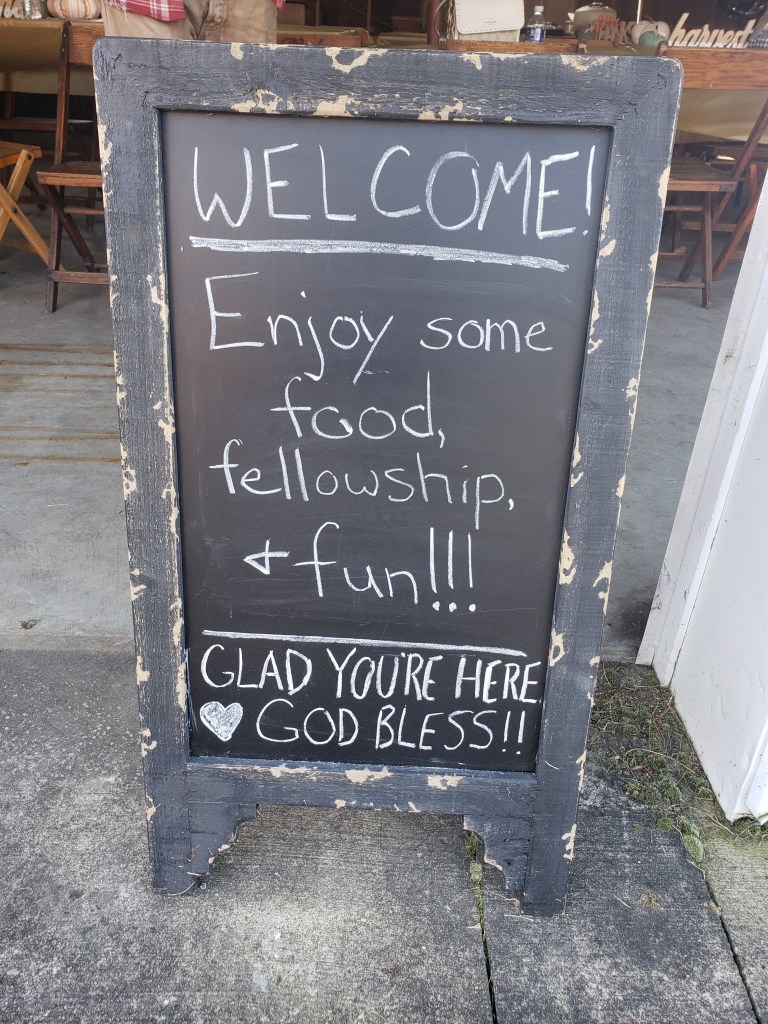 harvest
WELCOME!
Enjoy some
food,
fellowship,
& fun!!!
GLAD YOU'RE HERE
GOD BLESS!!